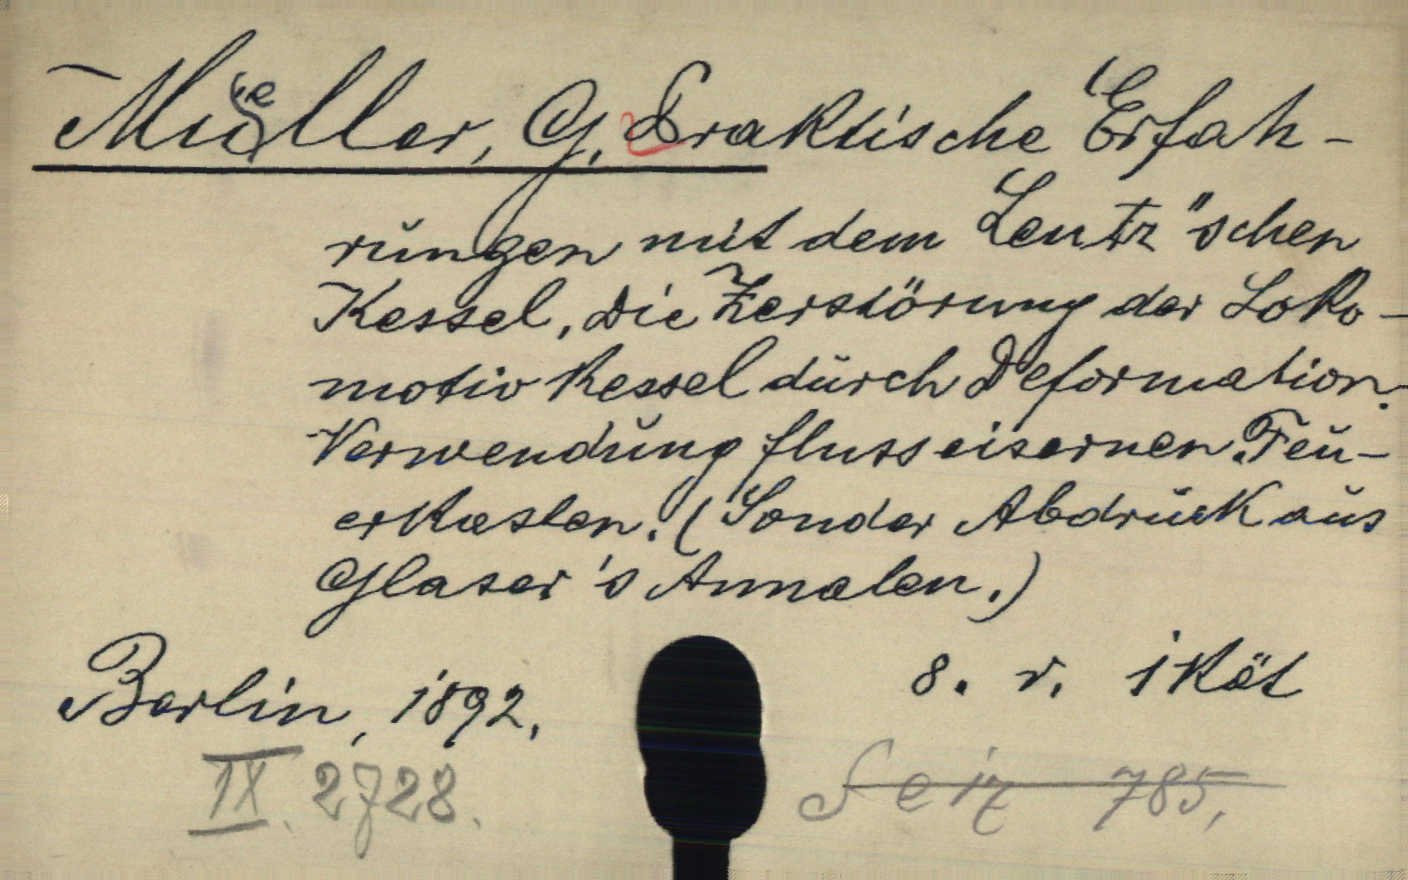 Müller, G. Praktische Erfah-
rŭngen mit dem Lentz"schen
Kessel, die Zerstörung der Loko-
motiv Kessel dŭrch Deformation.
Verwendŭng flusseisernen Feŭ-
erkasten. (Sonder Abdrŭck aŭs
Glaser's Annalen.)
Berlin, 1892. 8. r. 1 Köt
IX. 2728. 785,